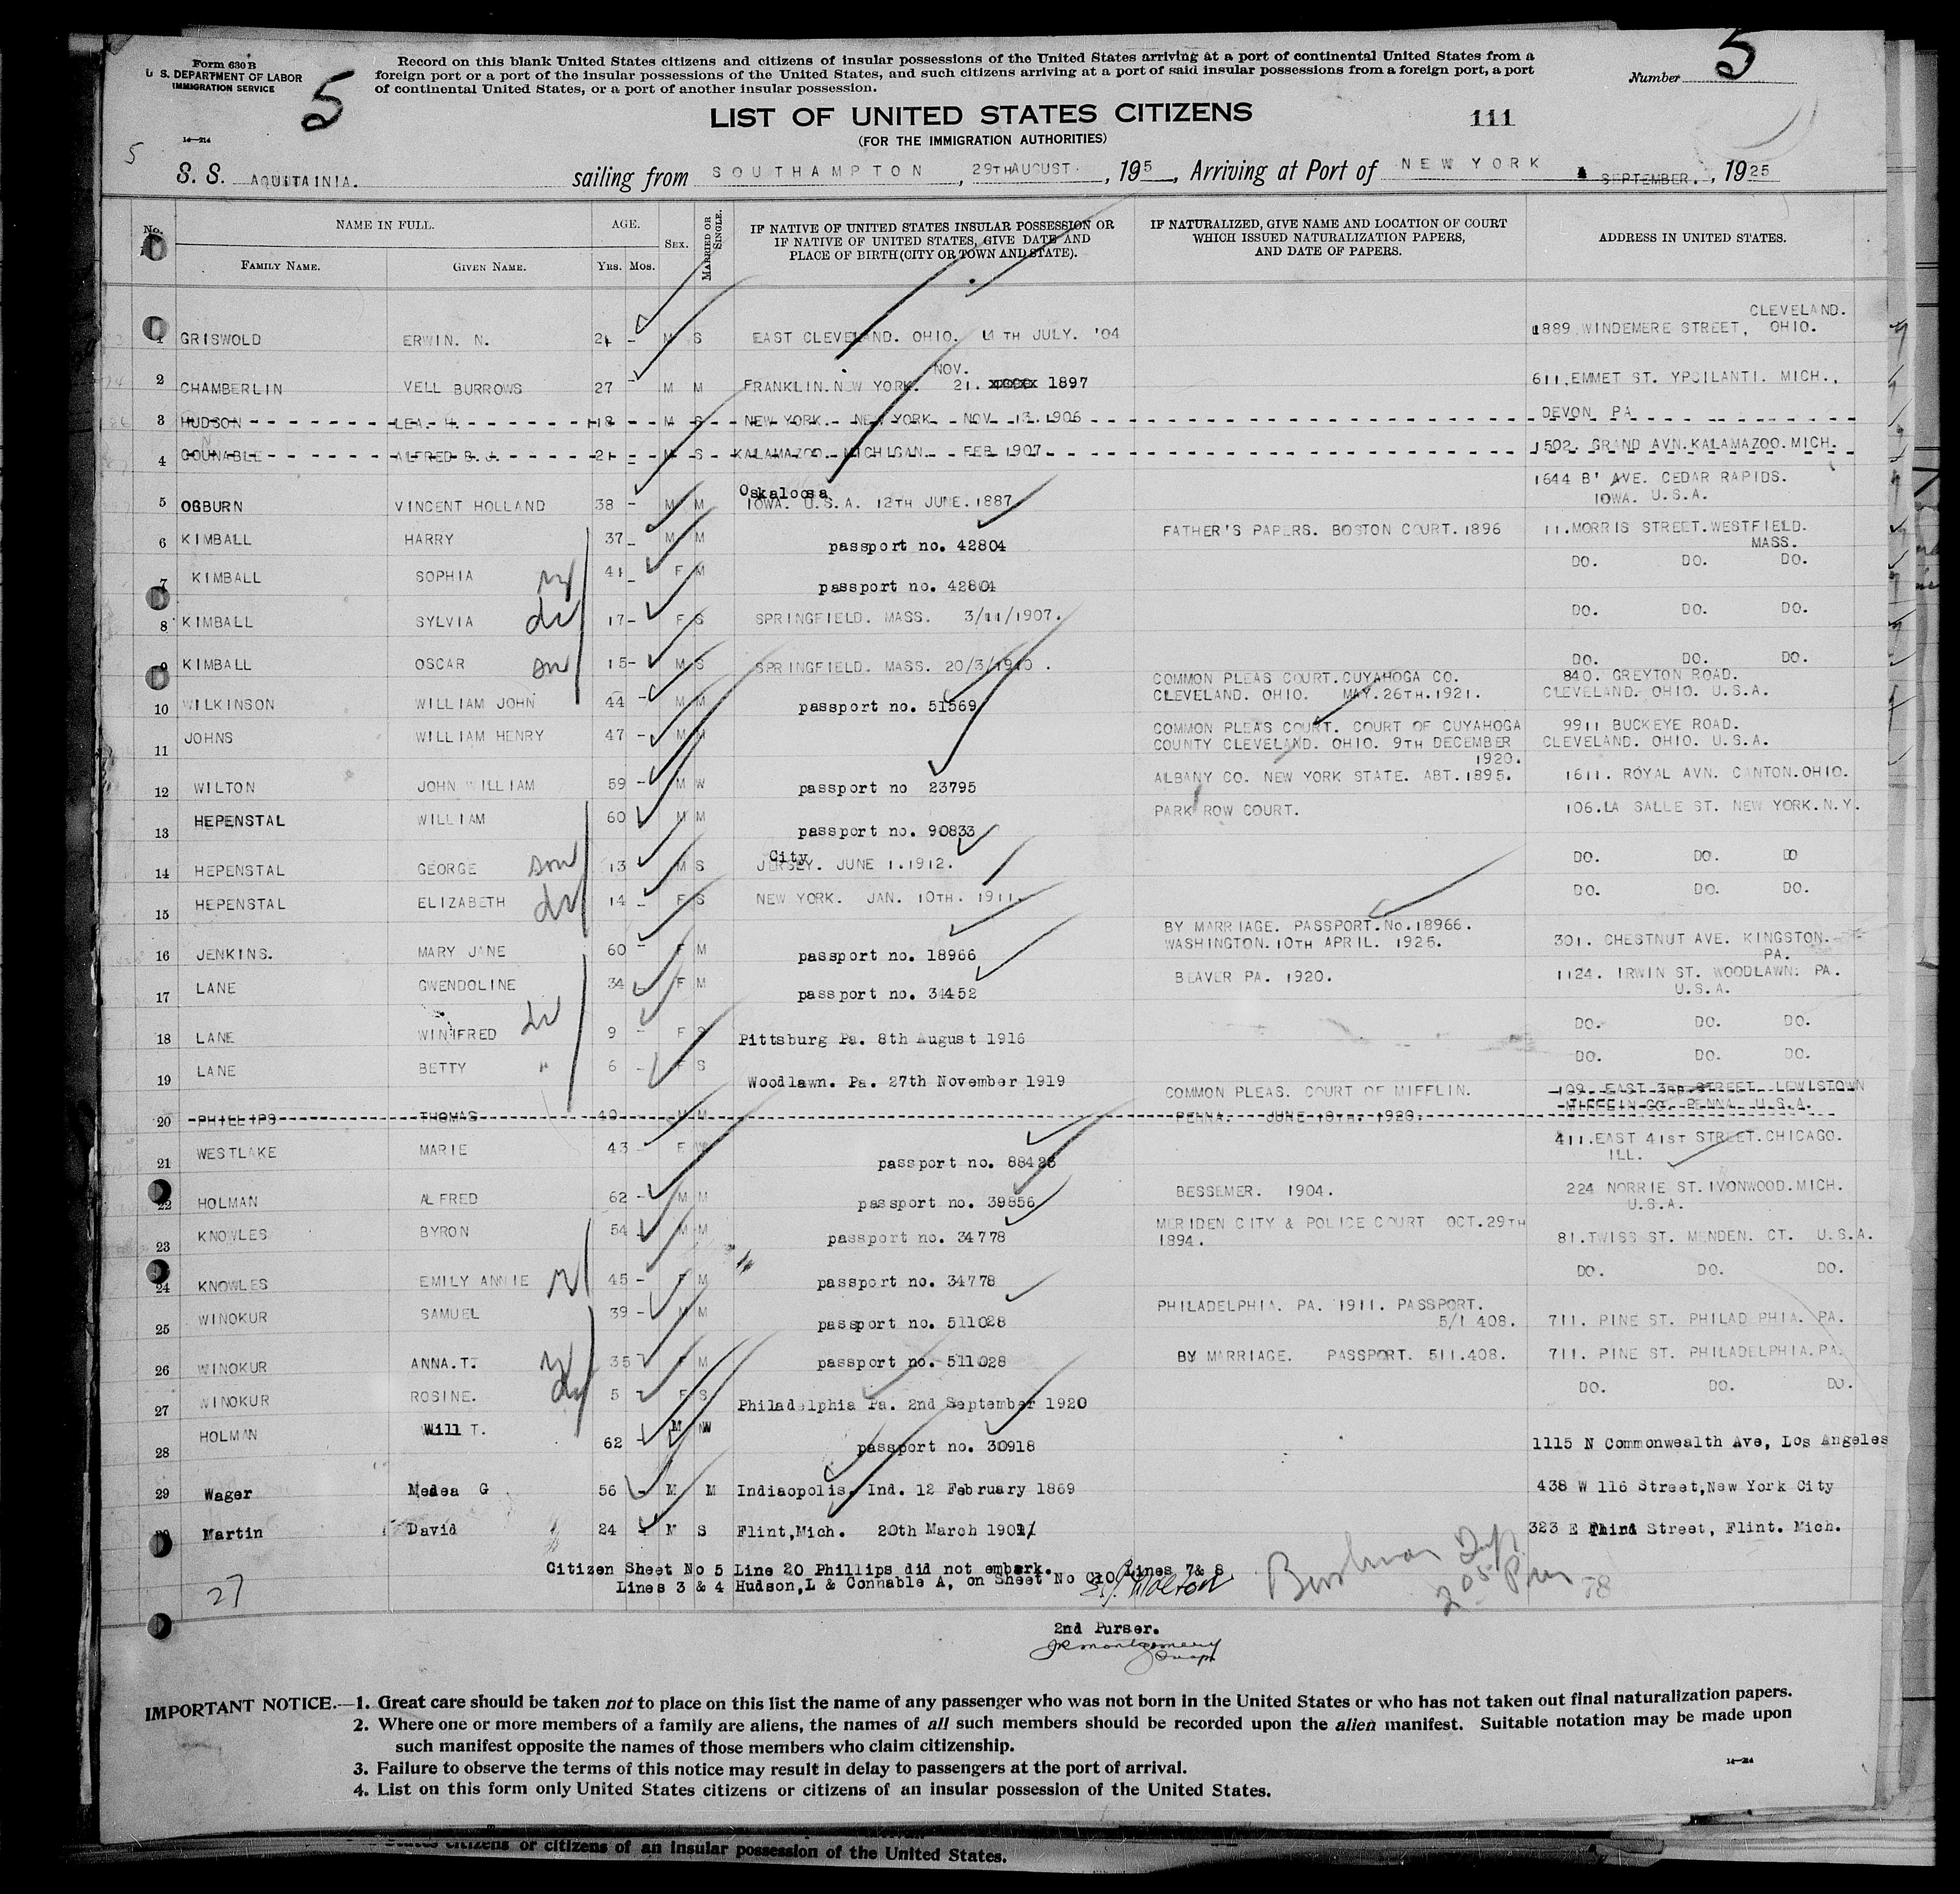 Form 630 B
U. S. DEPARTMENT OF LABOR
IMMIGRATION SERVICE
5
Record on this blank United States citizens and citizens of insular possessions of the United States arriving at a port of continental United States from a
foreign port or a port of the insular possessions of the United States, and such citizens arriving at a port of said insular possessions from a foreign port, a port
of continental United States, or a port of another insular possession.
Number 5
LIST OF UNITED STATES CITIZENS
111
(FOR THE IMMIGRATION AUTHORITIES)
14—214
5
S. S. AQUITAINIA. sailing from SOUTHAMPTON, 29TH AUGUST, 195, Arriving at Port of NEW YORK SEPTEMBER., 1925
No. NAME IN FULL. AGE. SEX. MARRIED OR SINGLE. IF NATIVE OF UNITED STATES INSULAR POSSESSION OR IF NATIVE OF UNITED STATES, GIVE DATE AND PLACE OF BIRTH (CITY OR TOWN AND STATE). IF NATURALIZED, GIVE NAME AND LOCATION OF COURT WHICH ISSUED NATURALIZATION PAPERS, AND DATE OF PAPERS. ADDRESS IN UNITED STATES.
FAMILY NAME. GIVEN NAME. Yrs. Mos.
1 GRISWOLD ERWIN. N. 21 - M S EAST CLEVELAND. OHIO. 14TH JULY. '04 1889.WINDEMERE STREET, CLEVELAND. OHIO.
2 CHAMBERLIN VELL BURROWS 27 - M M FRANKLIN.NEW YORK. NOV. 21. xxxxx 1897 611.EMMET ST. YPSILANTI. MICH.,
3 HUDSON LEA. H. 18 - M S NEW YORK. NEW YORK NOV 13.1906 DEVON PA
4 COUNABLE ALFRED B.J. 21 - M S KALAMAZOO. MICHIGAN. FEB 1907 1502. GRAND AVN.KALAMAZOO.MICH.
5 OGBURN VINCENT HOLLAND 38 - M M Oskaloosa IOWA. U.S.A. 12TH JUNE.1887 1644 B' AVE. CEDAR RAPIDS. IOWA. U.S.A.
6 KIMBALL HARRY 37 - M M passport no. 42804 FATHER'S PAPERS. BOSTON COURT.1896 11.MORRIS STREET.WESTFIELD. MASS.
7 KIMBALL SOPHIA 41 - F M passport no. 42804 DO. DO. DO.
8 KIMBALL SYLVIA 17- F S SPRINGFIELD. MASS. 3/11/1907. DO. DO. DO.
9 KIMBALL OSCAR 15- M S SPRINGFIELD. MASS. 20/3/1910 . DO. DO. DO.
10 WILKINSON WILLIAM JOHN 44 - M M passport no. 51569 COMMON PLEAS COURT.CUYAHOGA CO. CLEVELAND. OHIO. MAY.26TH.1921. 840. GREYTON ROAD. CLEVELAND. OHIO. U.S.A.
11 JOHNS WILLIAM HENRY 47 - M M COMMON PLEAS COURT. COURT OF CUYAHOGA COUNTY CLEVELAND. OHIO. 9TH DECEMBER 1920. 9911 BUCKEYE ROAD. CLEVELAND. OHIO. U.S.A.
12 WILTON JOHN WILLIAM 59 - M W passport no 23795 ALBANY CO. NEW YORK STATE. ABT.1895. 1611. ROYAL AVN. CANTON.OHIO.
13 HEPENSTAL WILLIAM 60 M M passport no. 90833 PARK ROW COURT. 106.LA SALLE ST. NEW YORK.N.Y.
14 HEPENSTAL GEORGE son 13 M S City JERSEY. JUNE 1.1912. DO. DO. DO
15 HEPENSTAL ELIZABETH 14 - F S NEW YORK. JAN. 10TH. 1911. DO. DO. DO.
16 JENKINS. MARY JANE 60 - F M passport no. 18966 BY MARRIAGE. PASSPORT.No.18966. WASHINGTON.10TH APRIL. 1925. 301. CHESTNUT AVE. KINGSTON. PA.
17 LANE GWENDOLINE 34 F M passport no. 34452 BEAVER PA. 1920. 1124. IRWIN ST. WOODLAWN. PA. U.S.A.
18 LANE WINIFRED 9 - F S Pittsburg Pa. 8th August 1916 DO. DO. DO.
19 LANE BETTY " 6 - F S Woodlawn. Pa. 27th November 1919 DO. DO. DO.
20 PHILLIPS THOMAS 40 M M COMMON PLEAS. COURT OF MIFFLIN. PENNA. JUNE 10TH. 1920. 109 EAST 3RD STREET LEWISTOWN MIFFLIN CO. PENNA. U.S.A.
21 WESTLAKE MARIE 43 - F W passport no. 88426 411.EAST 41ST STREET.CHICAGO. ILL.
22 HOLMAN ALFRED 62 - M M passport no. 39856 BESSEMER. 1904. 224 NORRIE ST.IVONWOOD.MICH. U.S.A.
23 KNOWLES BYRON 54 M M passport no. 34778 MERIDEN CITY & POLICE COURT OCT.29TH 1894. 81.TWISS ST. MENDEN. CT. U.S.A.
24 KNOWLES EMILY ANNIE 45 - F M passport no. 34778 DO. DO. DO.
25 WINOKUR SAMUEL 39 - M M passport no. 511028 PHILADELPHIA. PA. 1911. PASSPORT. 5/1 408. 711. PINE ST. PHILAD PHIA. PA.
26 WINOKUR ANNA.T. 35 F M passport no. 511028 BY MARRIAGE. PASSPORT. 511.408. 711. PINE ST. PHILADELPHIA.PA.
27 WINOKUR ROSINE. 5 - F S Philadelphia Pa. 2nd September 1920 DO. DO. DO.
28 HOLMAN Will T. 62 M W passport no. 30918 1115 N Commonwealth Ave, Los Angeles
29 Wager Medea G 56 - M M Indiaopolis. Ind. 12 February 1869 438 W 116 Street,New York City
30 Martin David 24 - M S Flint,Mich. 20th March 1901 323 E Third Street, Flint. Mich.
Citizen Sheet No 5 Line 20 Phillips did not embark.
Lines 3 & 4 Hudson,L & Connable A, on Sheet No C10 Lines 7& 8
27
2nd Purser.
JRMontgomery
IMPORTANT NOTICE.—1. Great care should be taken not to place on this list the name of any passenger who was not born in the United States or who has not taken out final naturalization papers.
2. Where one or more members of a family are aliens, the names of all such members should be recorded upon the alien manifest. Suitable notation may be made upon
such manifest opposite the names of those members who claim citizenship.
3. Failure to observe the terms of this notice may result in delay to passengers at the port of arrival.
14—214
4. List on this form only United States citizens or citizens of an insular possession of the United States.
States citizens or citizens of an insular possession of the United States.